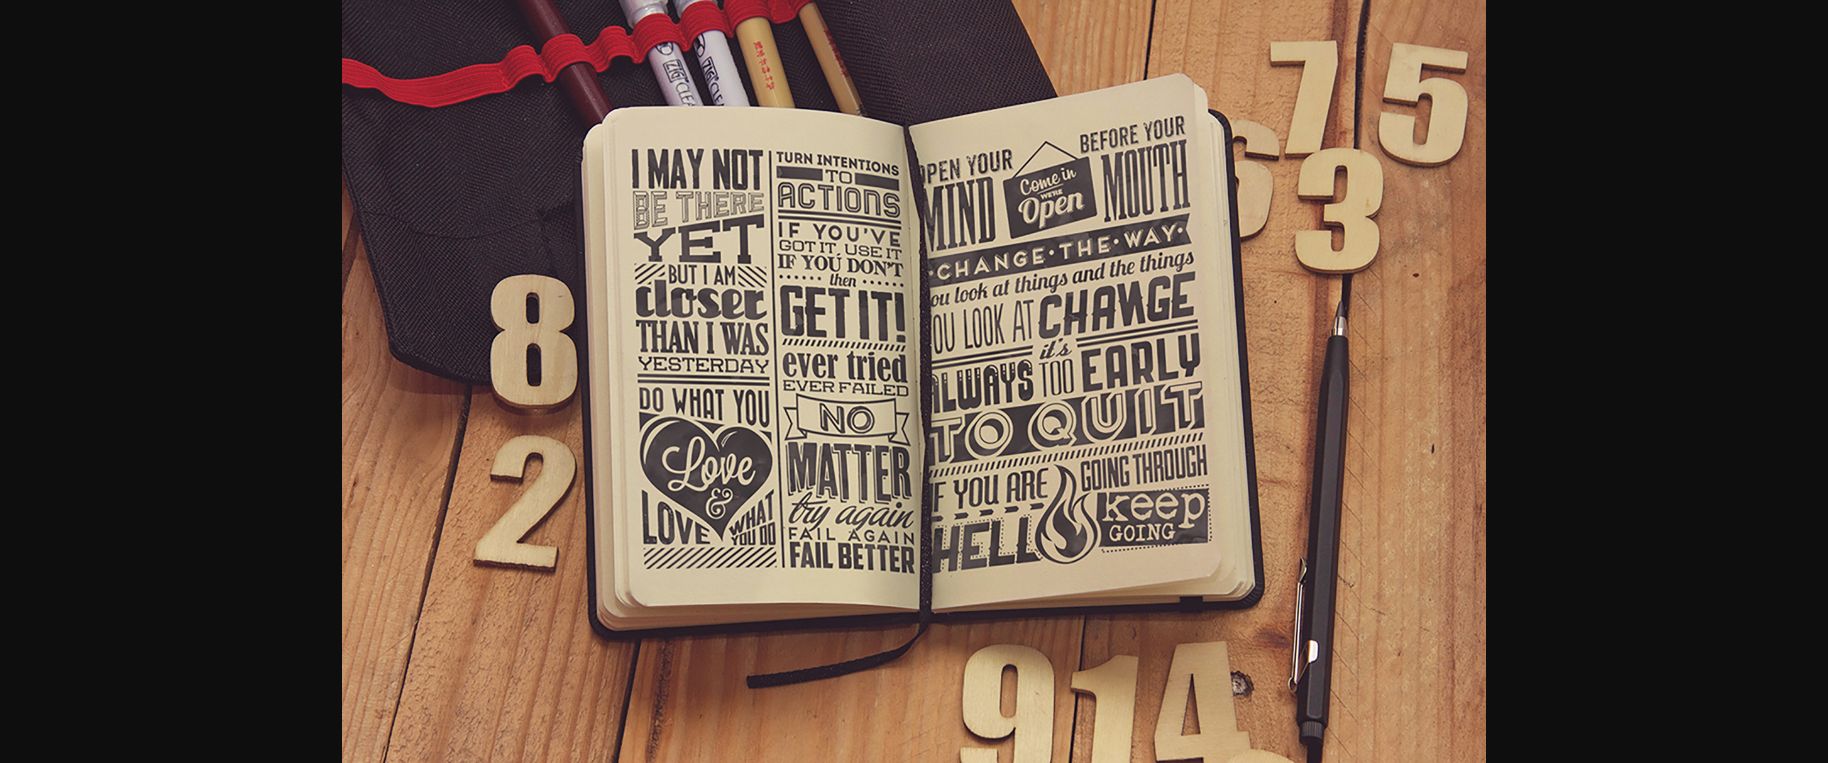 ZIG CLEA
ZIG CLE
I MAY NOT
BE THERE
YET
BUT I AM
closer
THAN I WAS
YESTERDAY
DO WHAT YOU
Love
&
LOVE WHAT
YOU DO
TURN INTENTIONS
TO
ACTIONS
IF YOU'VE
GOT IT, USE IT
IF YOU DON'T
then
GET IT!
ever tried
EVER FAILED
NO
MATTER
try again
FAIL AGAIN
FAIL BETTER
OPEN YOUR
MIND
Come in
WE'RE
Open
BEFORE YOUR
MOUTH
•CHANGE•THE•WAY•
you look at things and the things
YOU LOOK AT CHANGE
it's
ALWAYS TOO EARLY
TO QUIT
IF YOU ARE
GOING THROUGH
HELL
keep
GOING
7 5
6
3
8
2
9 1 4